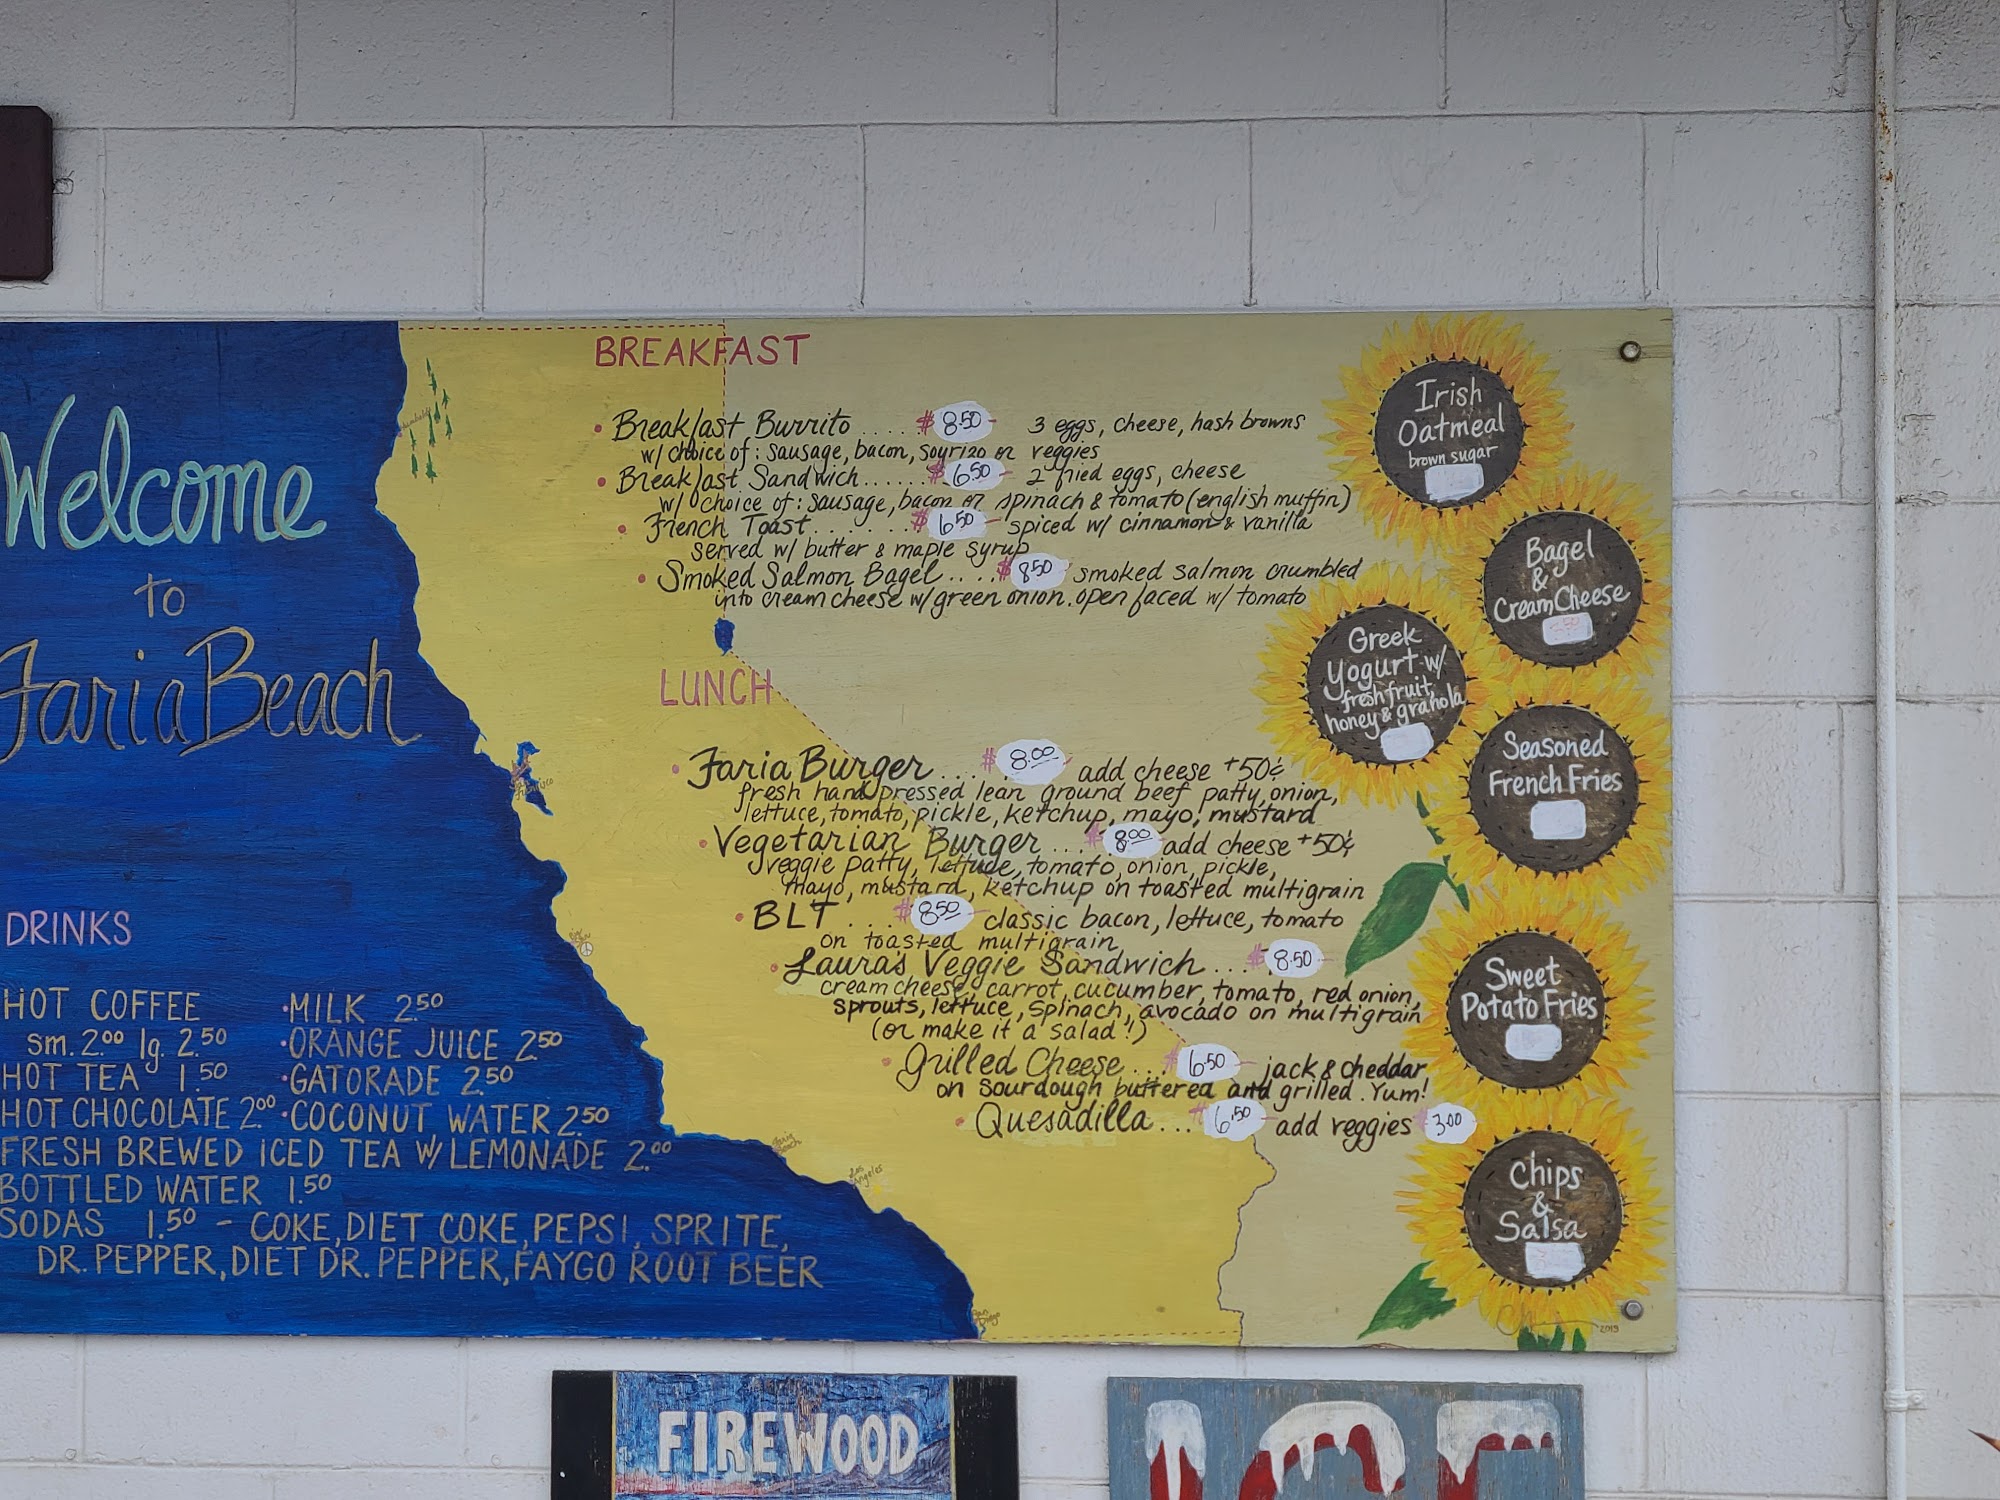 Welcome
to
Faria Beach
DRINKS
HOT COFFEE
sm. 2.00 lg. 2.50
HOT TEA 1.50
HOT CHOCOLATE 2.00
·MILK 2.50
·ORANGE JUICE 2.50
·GATORADE 2.50
·COCONUT WATER 2.50
FRESH BREWED ICED TEA W/ LEMONADE 2.00
BOTTLED WATER 1.50
SODAS 1.50 - COKE, DIET COKE, PEPSI, SPRITE,
DR. PEPPER, DIET DR. PEPPER, FAYGO ROOT BEER
BREAKFAST
• Breakfast Burrito ..... $8.50 3 eggs, cheese, hash browns
w/ choice of: sausage, bacon, soyrizo or veggies
• Breakfast Sandwich ...... $6.50 - 2 fried eggs, cheese
w/ choice of: sausage, bacon or spinach & tomato (english muffin)
• French Toast ....... $6.50 - spiced w/ cinnamon & vanilla
served w/ butter & maple syrup
• Smoked Salmon Bagel .... $8.50 smoked salmon crumbled
into cream cheese w/ green onion. open faced w/ tomato
LUNCH
• Faria Burger .... $8.00 add cheese +50¢
fresh hand pressed lean ground beef patty, onion,
lettuce, tomato, pickle, ketchup, mayo, mustard
• Vegetarian Burger ... $8.00 add cheese +50¢
veggie patty, lettuce, tomato, onion, pickle,
mayo, mustard, ketchup on toasted multigrain
• BLT ... $8.50 classic bacon, lettuce, tomato
on toasted multigrain
• Laura's Veggie Sandwich ... $8.50
cream cheese, carrot, cucumber, tomato, red onion,
sprouts, lettuce, spinach, avocado on multigrain
(or make it a salad!)
• Grilled Cheese ... $6.50 - jack & cheddar
on sourdough buttered and grilled. Yum!
• Quesadilla ... $6.50 - add veggies $3.00
Irish
Oatmeal
brown sugar
Bagel
&
Cream Cheese
Greek
Yogurt w/
fresh fruit,
honey & granola
Seasoned
French Fries
Sweet
Potato Fries
Chips
&
Salsa
2019
Faria
Beach
Los
Angeles
San
Diego
FIREWOOD
ICE